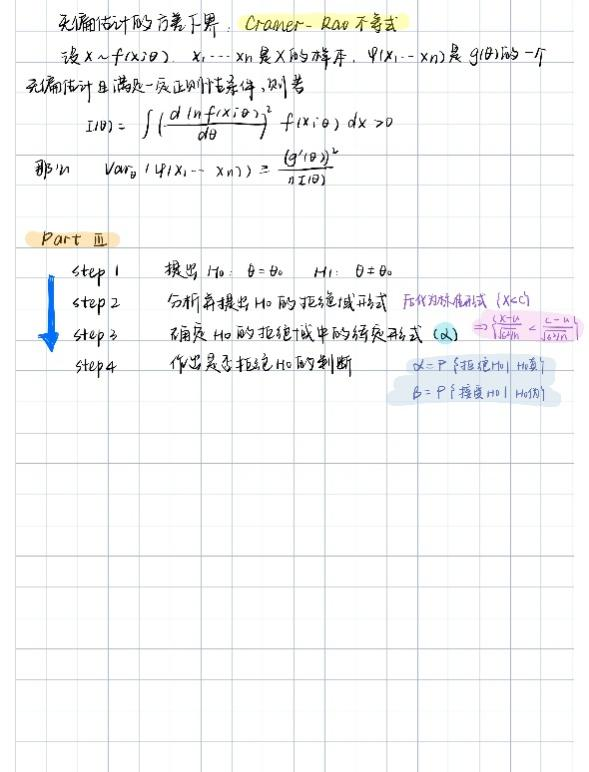 无偏估计的方差下界. Cramer-Rao 不等式
设X~f(x;θ). X₁…Xn是X的样本, φ(X₁…Xn)是g(θ)的一个
无偏估计且满足一定正则性条件,则若
I(θ) = ∫(d ln f(x;θ)/dθ)² f(x;θ) dx >0
那么 Varθ(φ(X₁…Xn)) ≥ (g'(θ))²/nI(θ)
Part Ⅲ
step 1 提出H₀: θ=θ₀ H₁: θ≠θ₀
step 2 分析并提出H₀的拒绝域形式 后化为标准形式 {X<C}
⇒ {X-u/√σ²/n < C-u/√σ²/n}
step 3 确定H₀的拒绝域中的待定形式 (α)
step 4 作出是否拒绝H₀的判断 α=P{拒绝H₀|H₀真}
β=P{接受H₀|H₀伪}